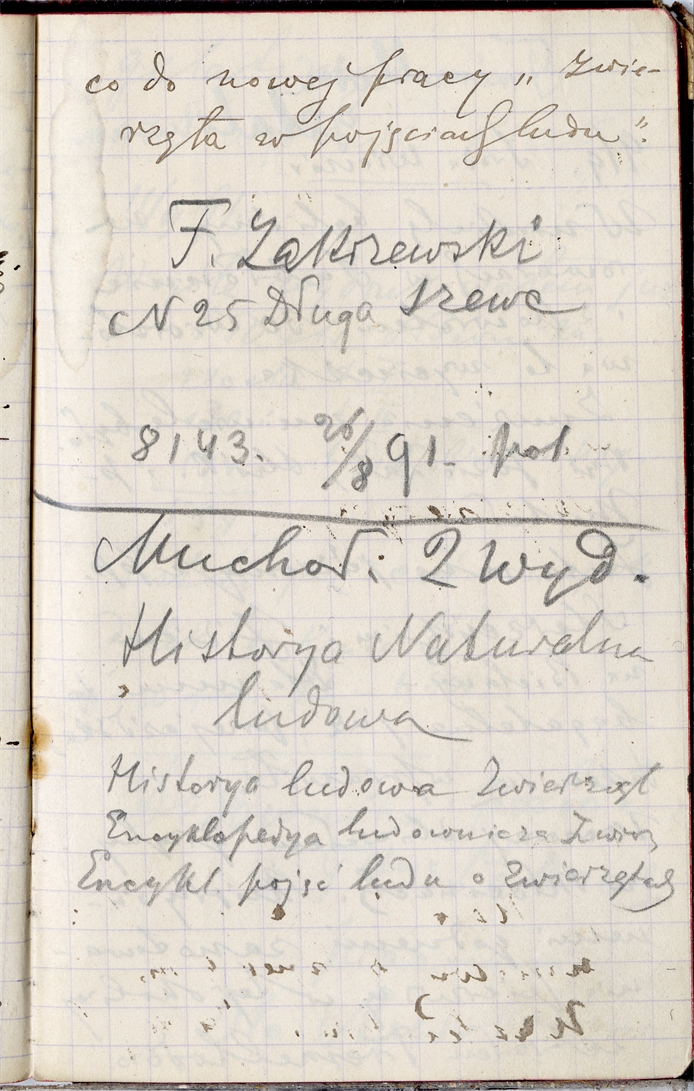 co do nowej pracy „Zwie-
rzęta w pojęciach ludu".
F. Zakrzewski
N 25 Długa szewc
8143. 26/8 91. pol.
Muchoł: 2 wyd.
Historya Naturalna
ludowa
Historya ludowa Zwierząt
Encyklopedya ludownicza Zwierz
Encykl pojęć ludu o Zwierzętach